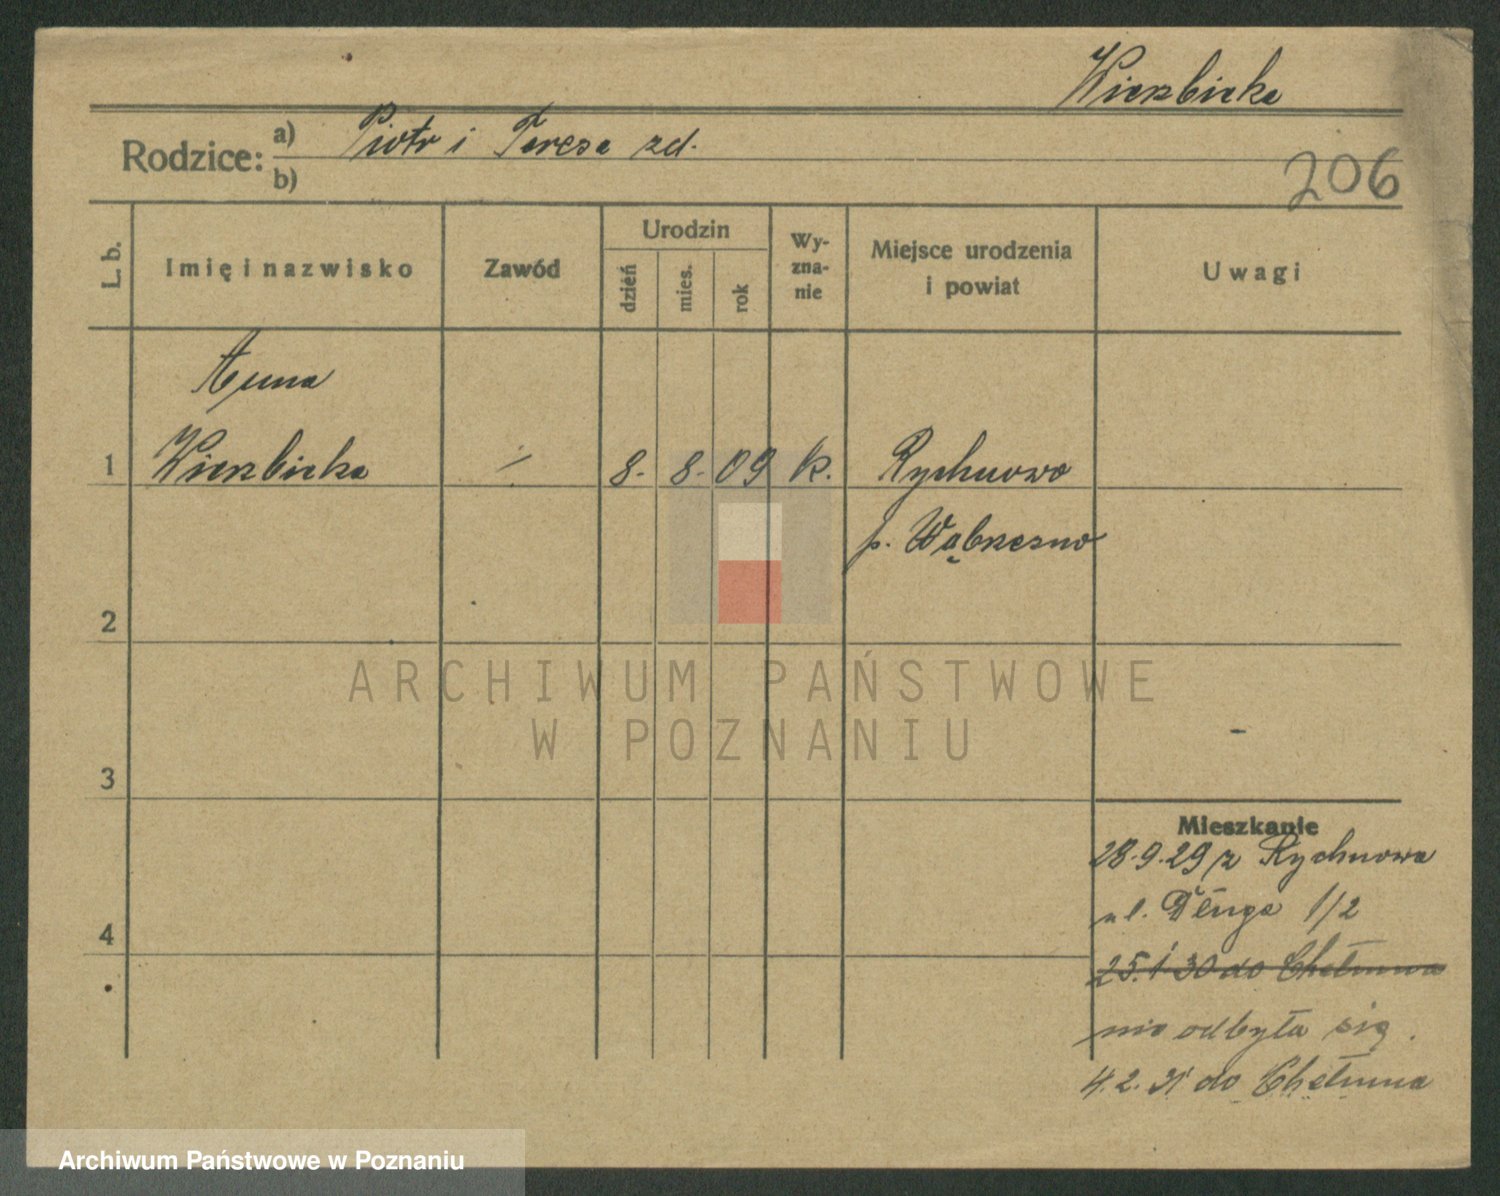 Wierzbicka
Rodzice: a) Piotr i Teresa zd.
b)
206
L. b. Imię i nazwisko Zawód Urodzin dzień mies. rok Wy-zna-nie Miejsce urodzenia i powiat Uwagi
Anna
1 Wierzbicka 8. 8. 09 k. Rychnowo
p. Wąbrzezno
2
3
Mieszkanie
28.9.29 z Rychnowa
ul. Długa 1/2
4
25.1.30 do Chełmna
nie odbyła się.
4.2.31 do Chełmna
ARCHIWUM PAŃSTWOWE
W POZNANIU
Archiwum Państwowe w Poznaniu